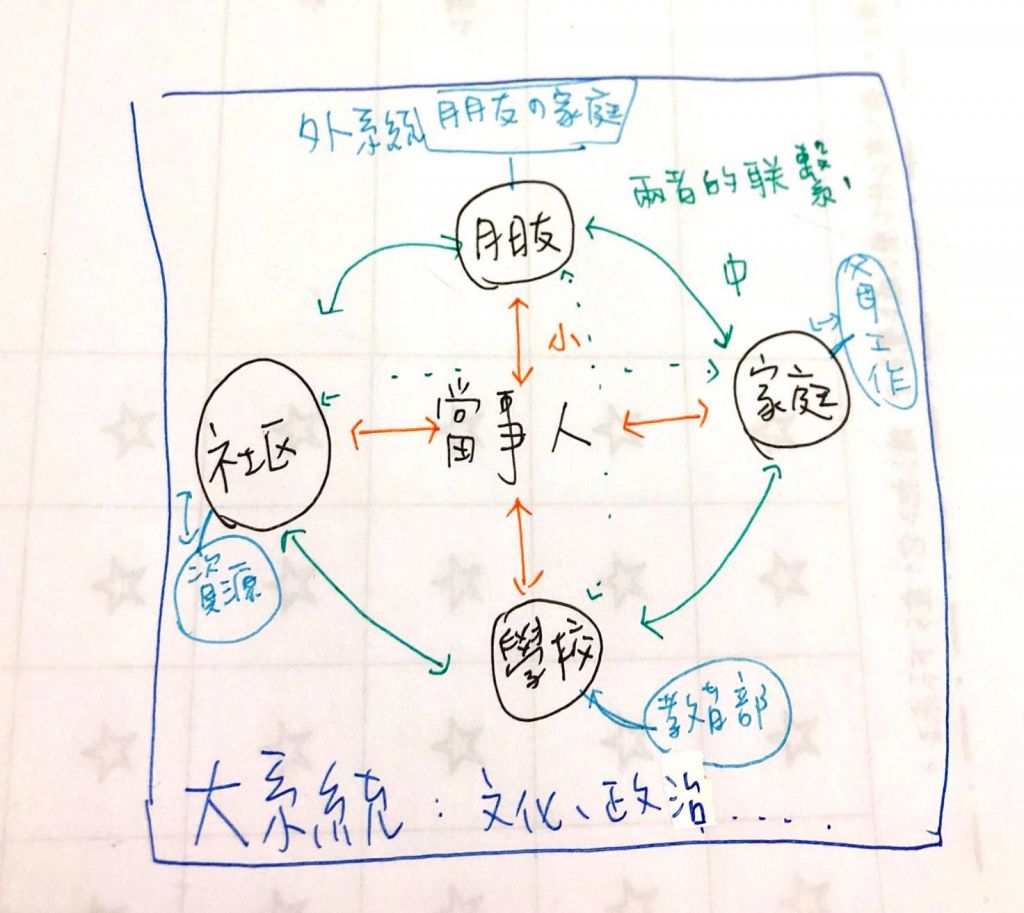 外系統 朋友の家庭
兩者的联繫,
朋友
中
小
父母工作
家庭
當事人
社区
資源
學校
教育部
大系統：文化、政治.....